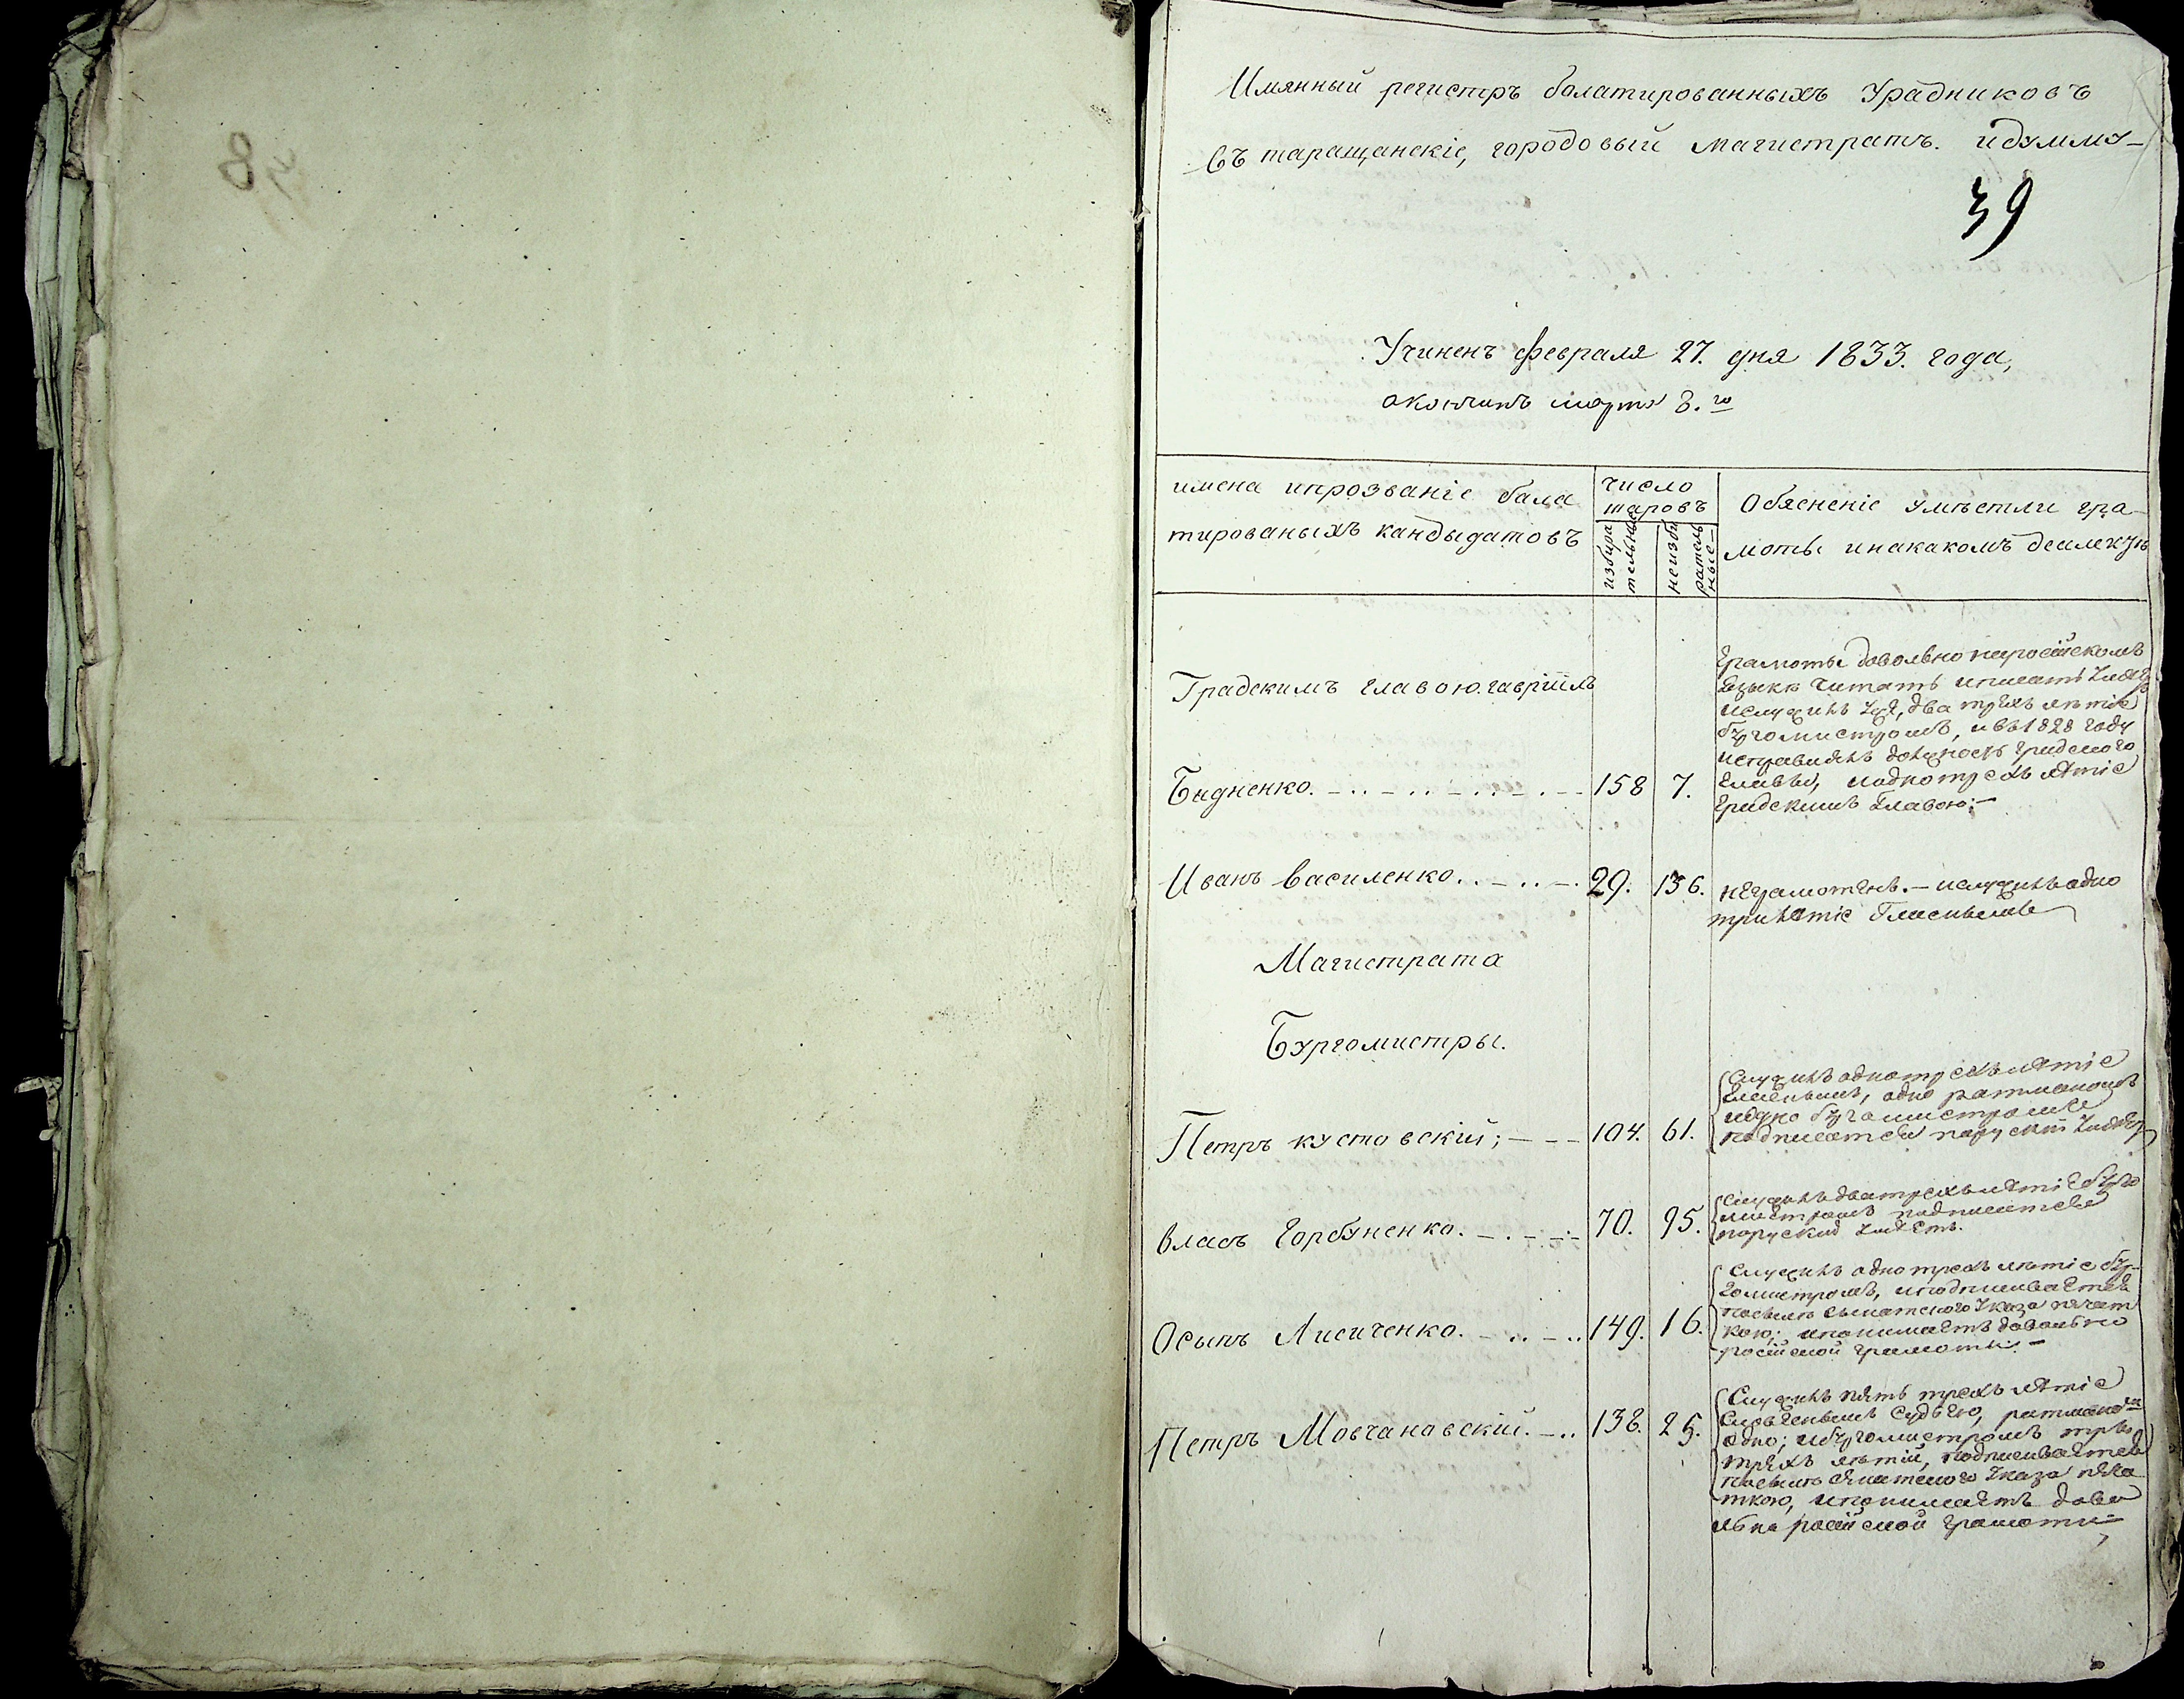 Имянный регистръ болатированныхъ Урадниковъ
въ таращанскіе, городовый магистратъ. идумму-
39
Учиненъ февраля 27. дня 1833. года,
оконченъ марта 8.го
имена ипрозваніе бала
тированыхъ кандыдатовъ
число
шаровъ
избира
тельные
неизби
ратель
ные-
Обясненіе умѣетли гра-
моты инакакомъ деалектѣ
Градскимъ главою. гавріилъ
Бидненко. 158 7.
грамоты довольно наросійскомъ
языкѣ читать иписать
ислужилъ два трехъ лѣтіе
бургомистромъ, ивъ 1828 году
исправлялъ должность градского
главы, иодно трехъ лѣтіе
градскимъ главою;-
Иванъ василенко. 29. 136.
неграмотенъ.- ислужилъ одно
трилѣтіе Гласнымъ
Магистрата
Бургомистры.
Петръ кустовский; 104. 61.
Служилъ одно трехъ лѣтіе
одно ратманомъ
иодно бургомистромъ
подписатся
власъ Горбуненко. 70. 95.
Служилъ два трехъ лѣтіе бурго
мистромъ подписатся
поруский умѣетъ.
Осыпъ Лисиченко. 149. 16.
Служилъ одно трехъ лѣтіе бур-
гомистромъ, иподписывается
посылѣ сенатского указа печат
кою; ипонимаетъ довольно
російской грамоты.-
Петръ Мовчановский. 138. 25.
Служилъ пять трехъ лѣтіе
Судьею, ратманом
одно; ибургомистромъ
трехъ лѣтій, подписывается
посылѣ сенатского указа печа
ткою, ипонимаетъ дово
льно російской грамоты-